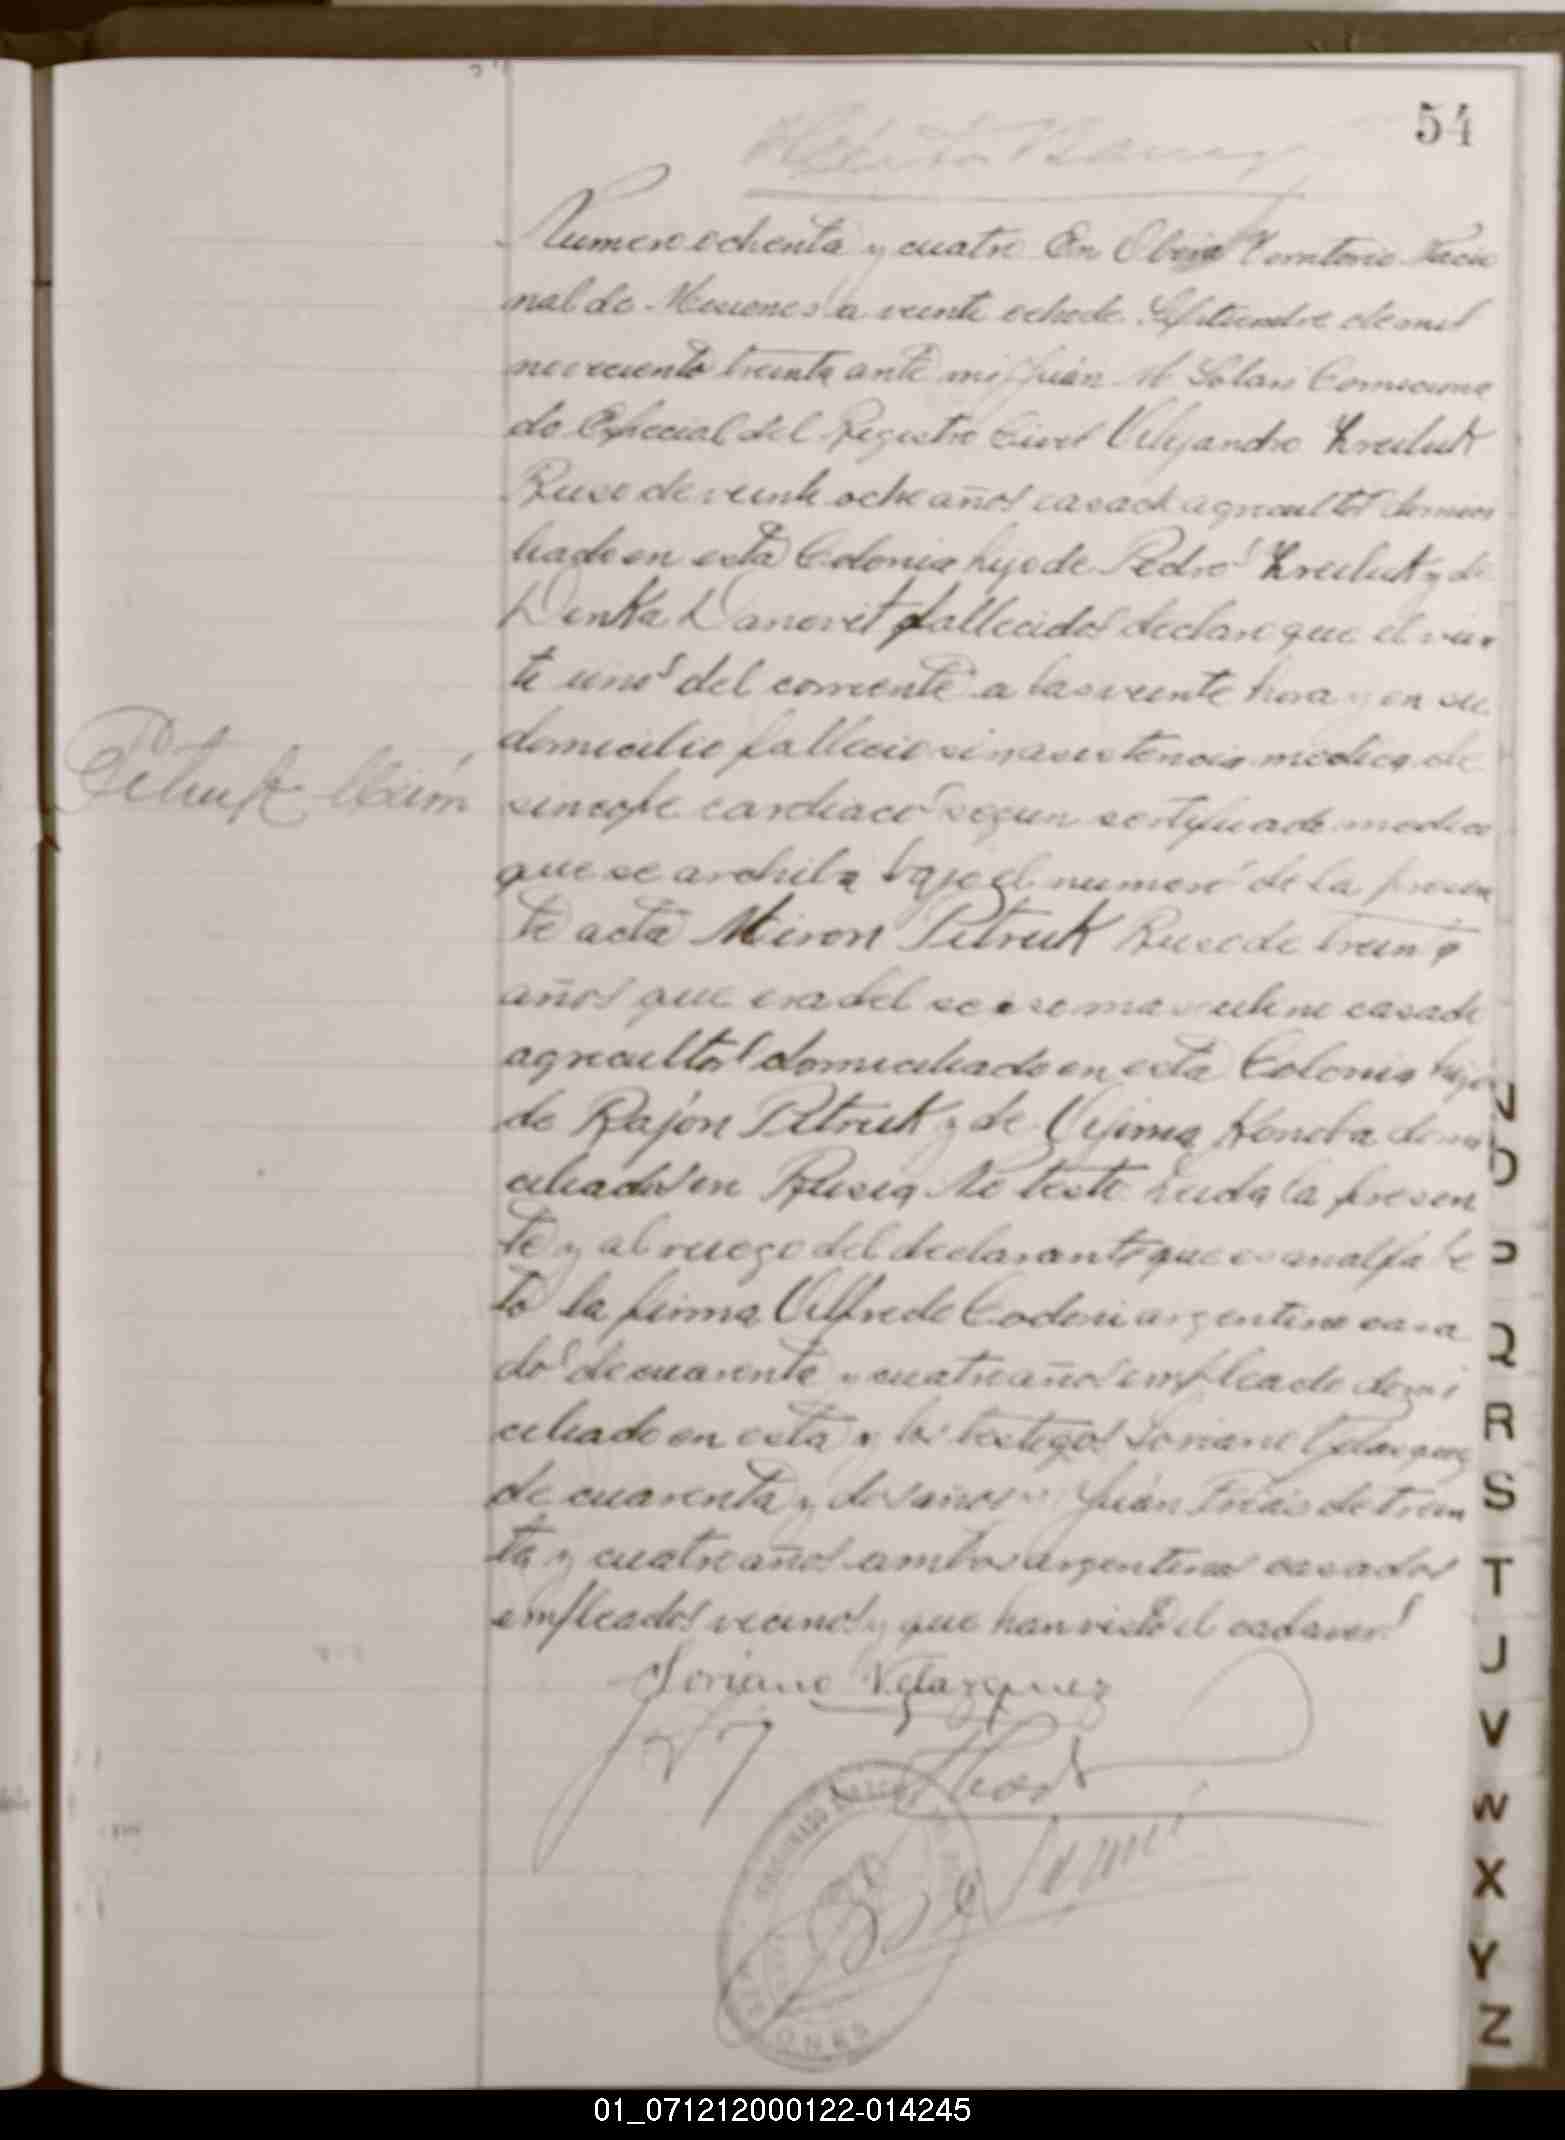 54
Numero ochenta y cuatro En Obera Territorio Nacio
nal de Misiones a veinte ocho de Septiembre de mil
noveciento treinta ante mi Juan M Solari Comiciona
do Especial del Registro Civil Alejandro Kreiluk
Ruso de veinte ocho años casado agricultor domici
liado en esta Colonia hijo de Pedro Kreiluk y de
Denka Danovit fallecidos declaro que el vein
te uno del corriente a las veinte hora y en su
domicilio fallecio sin asistencia medica de
Petruk Meirón
sincope cardiaco segun sertificado medico
que se archiba bajo el numero de la presen
te acta Meiron Petruk Ruso de treinta
años que era del sexso masculino casado
agricultor domiciliado en esta Colonia hijo
de Rajón Petruk y de Konoba domi
ciliados en Rusia No testo Leida la presen
te y al ruego del declarante que es analfabe
to la firma Alfredo Codoni argentino casa
do de cuarenta y cuatro años empleado domi
ciliado en esta y los testigos Soriano Velasquez
de cuarenta y dos años y Juan Frias de trein
ta y cuatro años ambos argentinos casados
empleados vecinos y que han visto el cadaver
Soriano Velazquez
N
O
P
Q
R
S
T
U
V
W
X
Y
Z
01_071212000122-014245